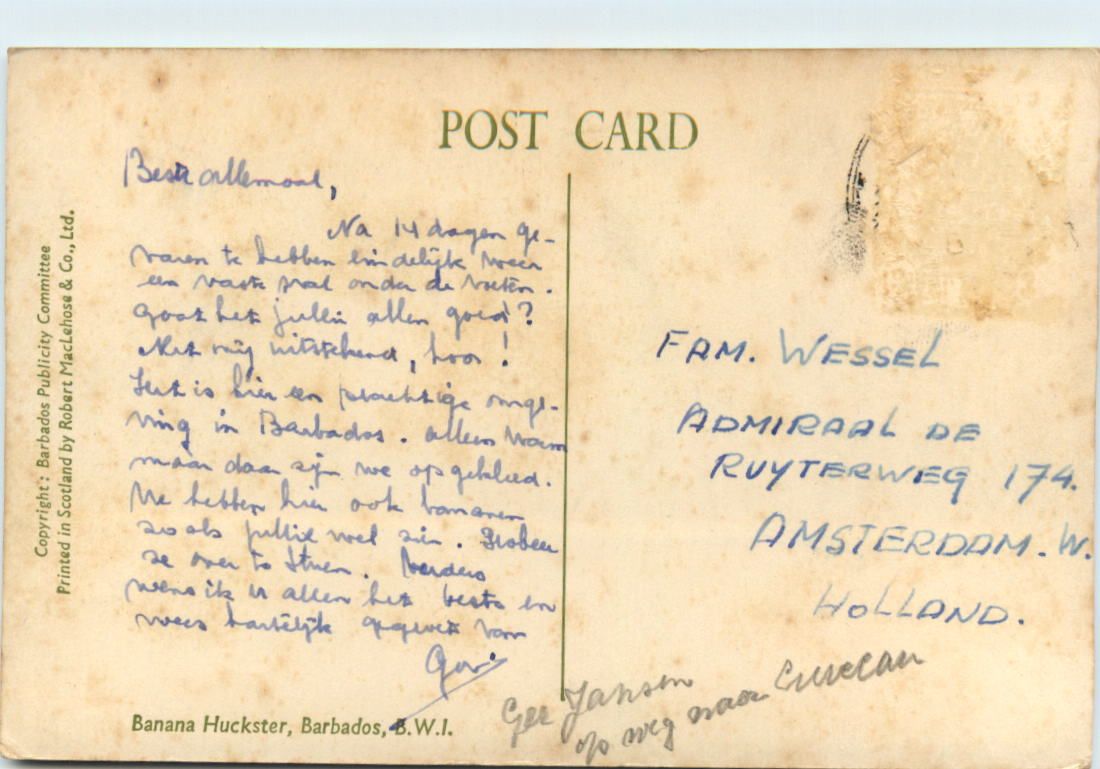 POST CARD
Copyright: Barbados Publicity Committee
Printed in Scotland by Robert MacLehose & Co., Ltd.
Beste allemaal,
Na 14 dagen ge-
varen te hebben eindelijk weer
een vaste wal onder de voeten.
Gaat het jullie allen goed?
Met mij uitstekend, hoor!
Het is hier een prachtige omge-
ving in Barbados. Alleen warm
maar daar zijn we op gekleed.
We hebben hier ook bananen
zoals jullie wel zien. Probeer
ze over te sturen. Verders
wens ik U allen het beste en
wees hartelijk gegroet van
Ger.
FAM. WESSEL
ADMIRAAL DE
RUYTERWEG 174.
AMSTERDAM. W.
HOLLAND.
Ger Jansen
op weg naar Curecau
Banana Huckster, Barbados, B.W.I.